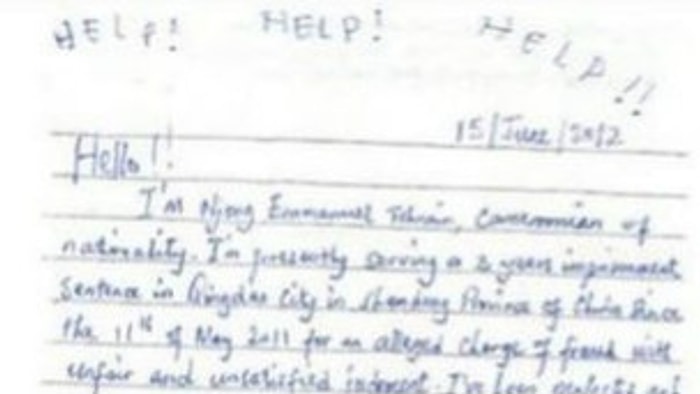 HELP! HELP! HELP!!
15/June/2012
Hello!!
I'm Njong Emmanuel Tohnain, Cameroonian of
nationality. I'm presently serving a 3 years imprisonment
Sentence in Qingdao City in Shandong Province of China Since
the 11th of May 2011 for an alleged charge of fraud with
unfair and unsatisfied I've been